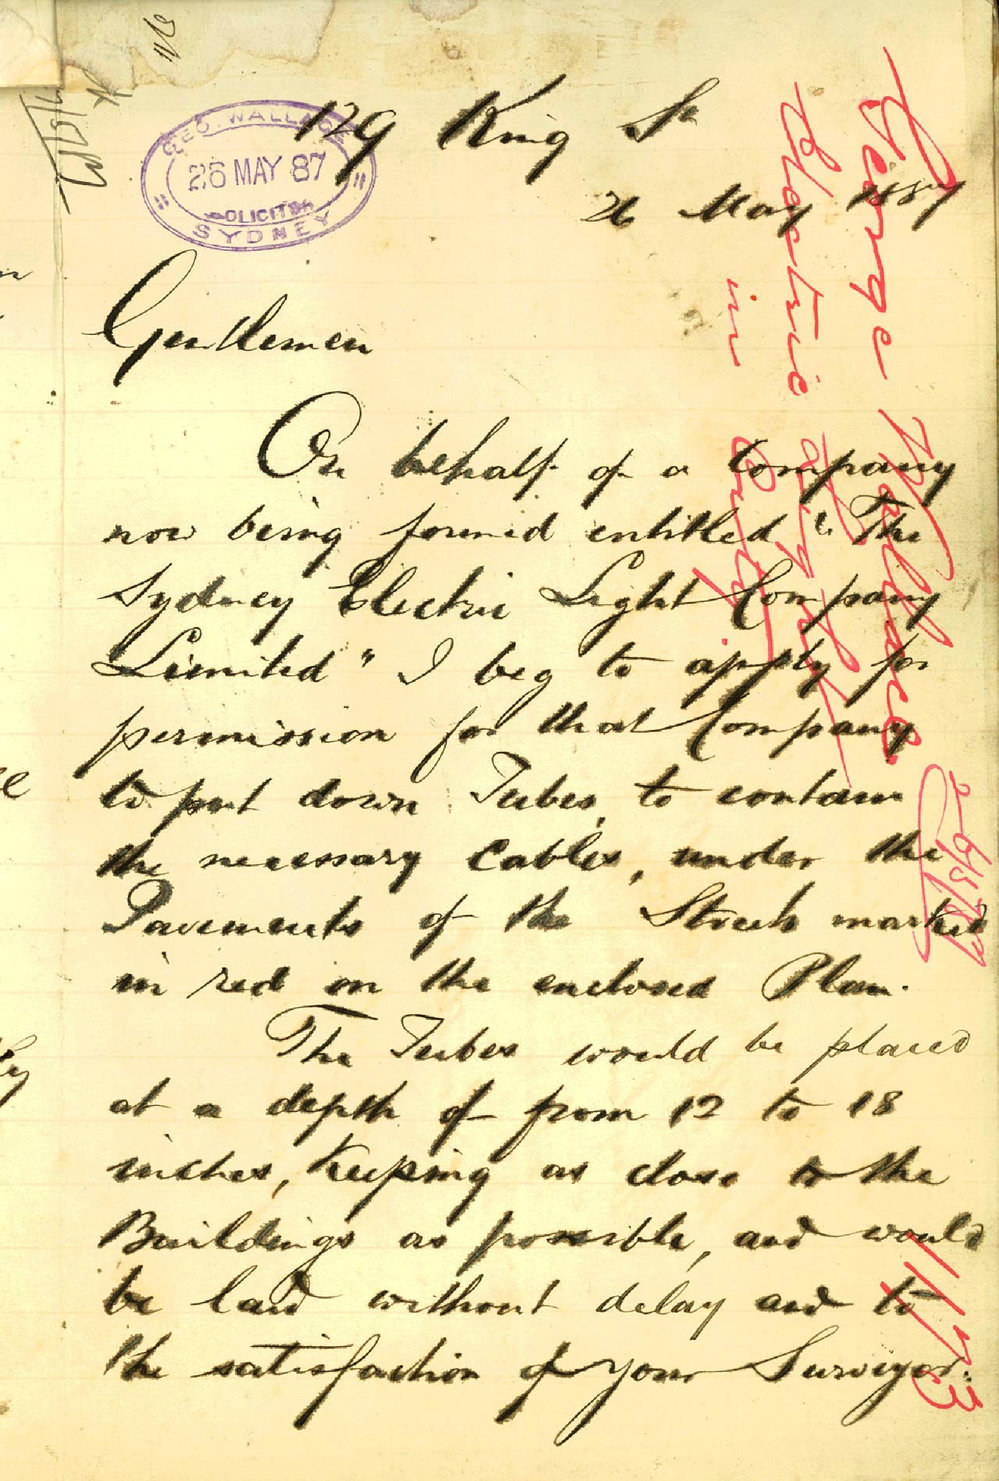 129 King St
26 May 1887
GEO. WALLACE
26 MAY 87
SOLICITOR
SYDNEY
Gentlemen
On behalf of a Company
now being formed entitled "The
Sydney Electric Light Company
Limited" I beg to apply for
permission for that Company
to put down Tubes, to contain
the necessary Cables, under the
Pavements of the Streets marked
in red on the enclosed Plan.
The Tubes would be placed
at a depth of from 12 to 18
inches, keeping as close to the
Buildings as possible, and would
be laid without delay and to
the satisfaction of your Surveyor.
George Wallace
Electric Light
in City
26/5/87
1173